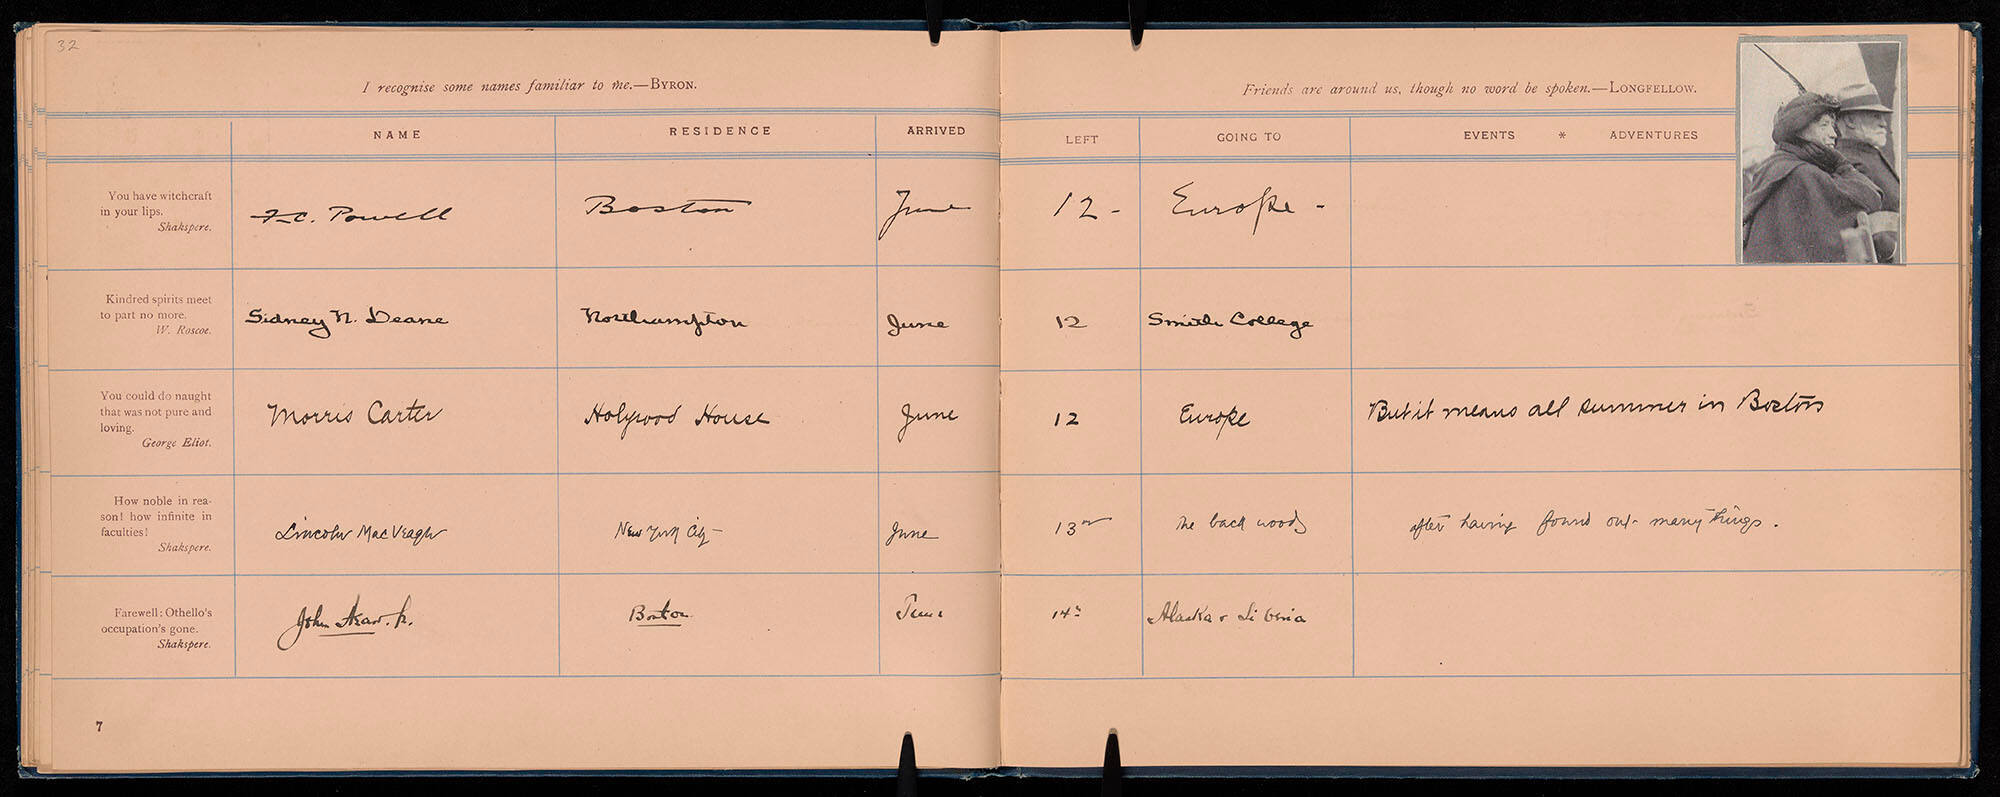 32
I recognise some names familiar to me.—BYRON.
NAME RESIDENCE ARRIVED
You have witchcraft
in your lips.
Shakspere.
F.C. Powell Boston June
Kindred spirits meet
to part no more.
W. Roscoe.
Sidney N. Deane Northampton June
You could do naught
that was not pure and
loving.
George Eliot.
Morris Carter Holyrood House June
How noble in rea-
son! how infinite in
faculties!
Shakspere.
Lincoln MacVeagh New York City June
Farewell: Othello's
occupation's gone.
Shakspere.
John Jr. Boston June
7
Friends are around us, though no word be spoken.—LONGFELLOW.
LEFT GOING TO EVENTS * ADVENTURES
12 - Europe -
12 Smith College
12 Europe But it means all summer in Boston
13 the back woods after having found out many things.
14 Alaska & Siberia